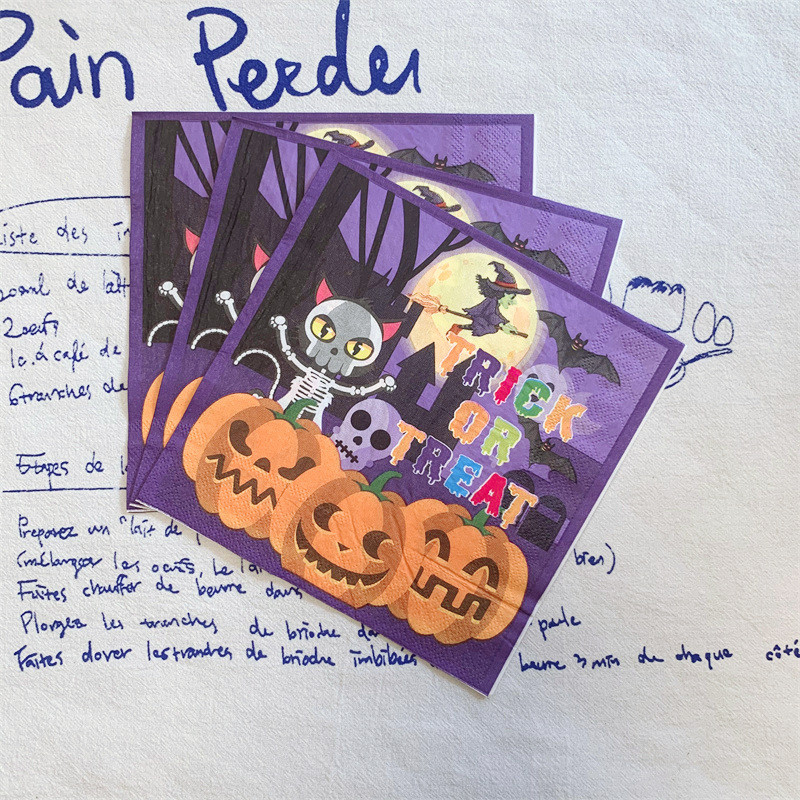 Pain Perdu
iste des in
lait
2 oeufs
1c. à café de
6 tranches de
TRICK
OR
TREAT
Etapes de
Preparez un "lait de
(mélanger les oeufs, le la bien)
Faites chauffer de beurre dans
Plongez les tranches de brioche da
Faites dorer les tranches de brioche imbibées beurre 3 min de chaque côté